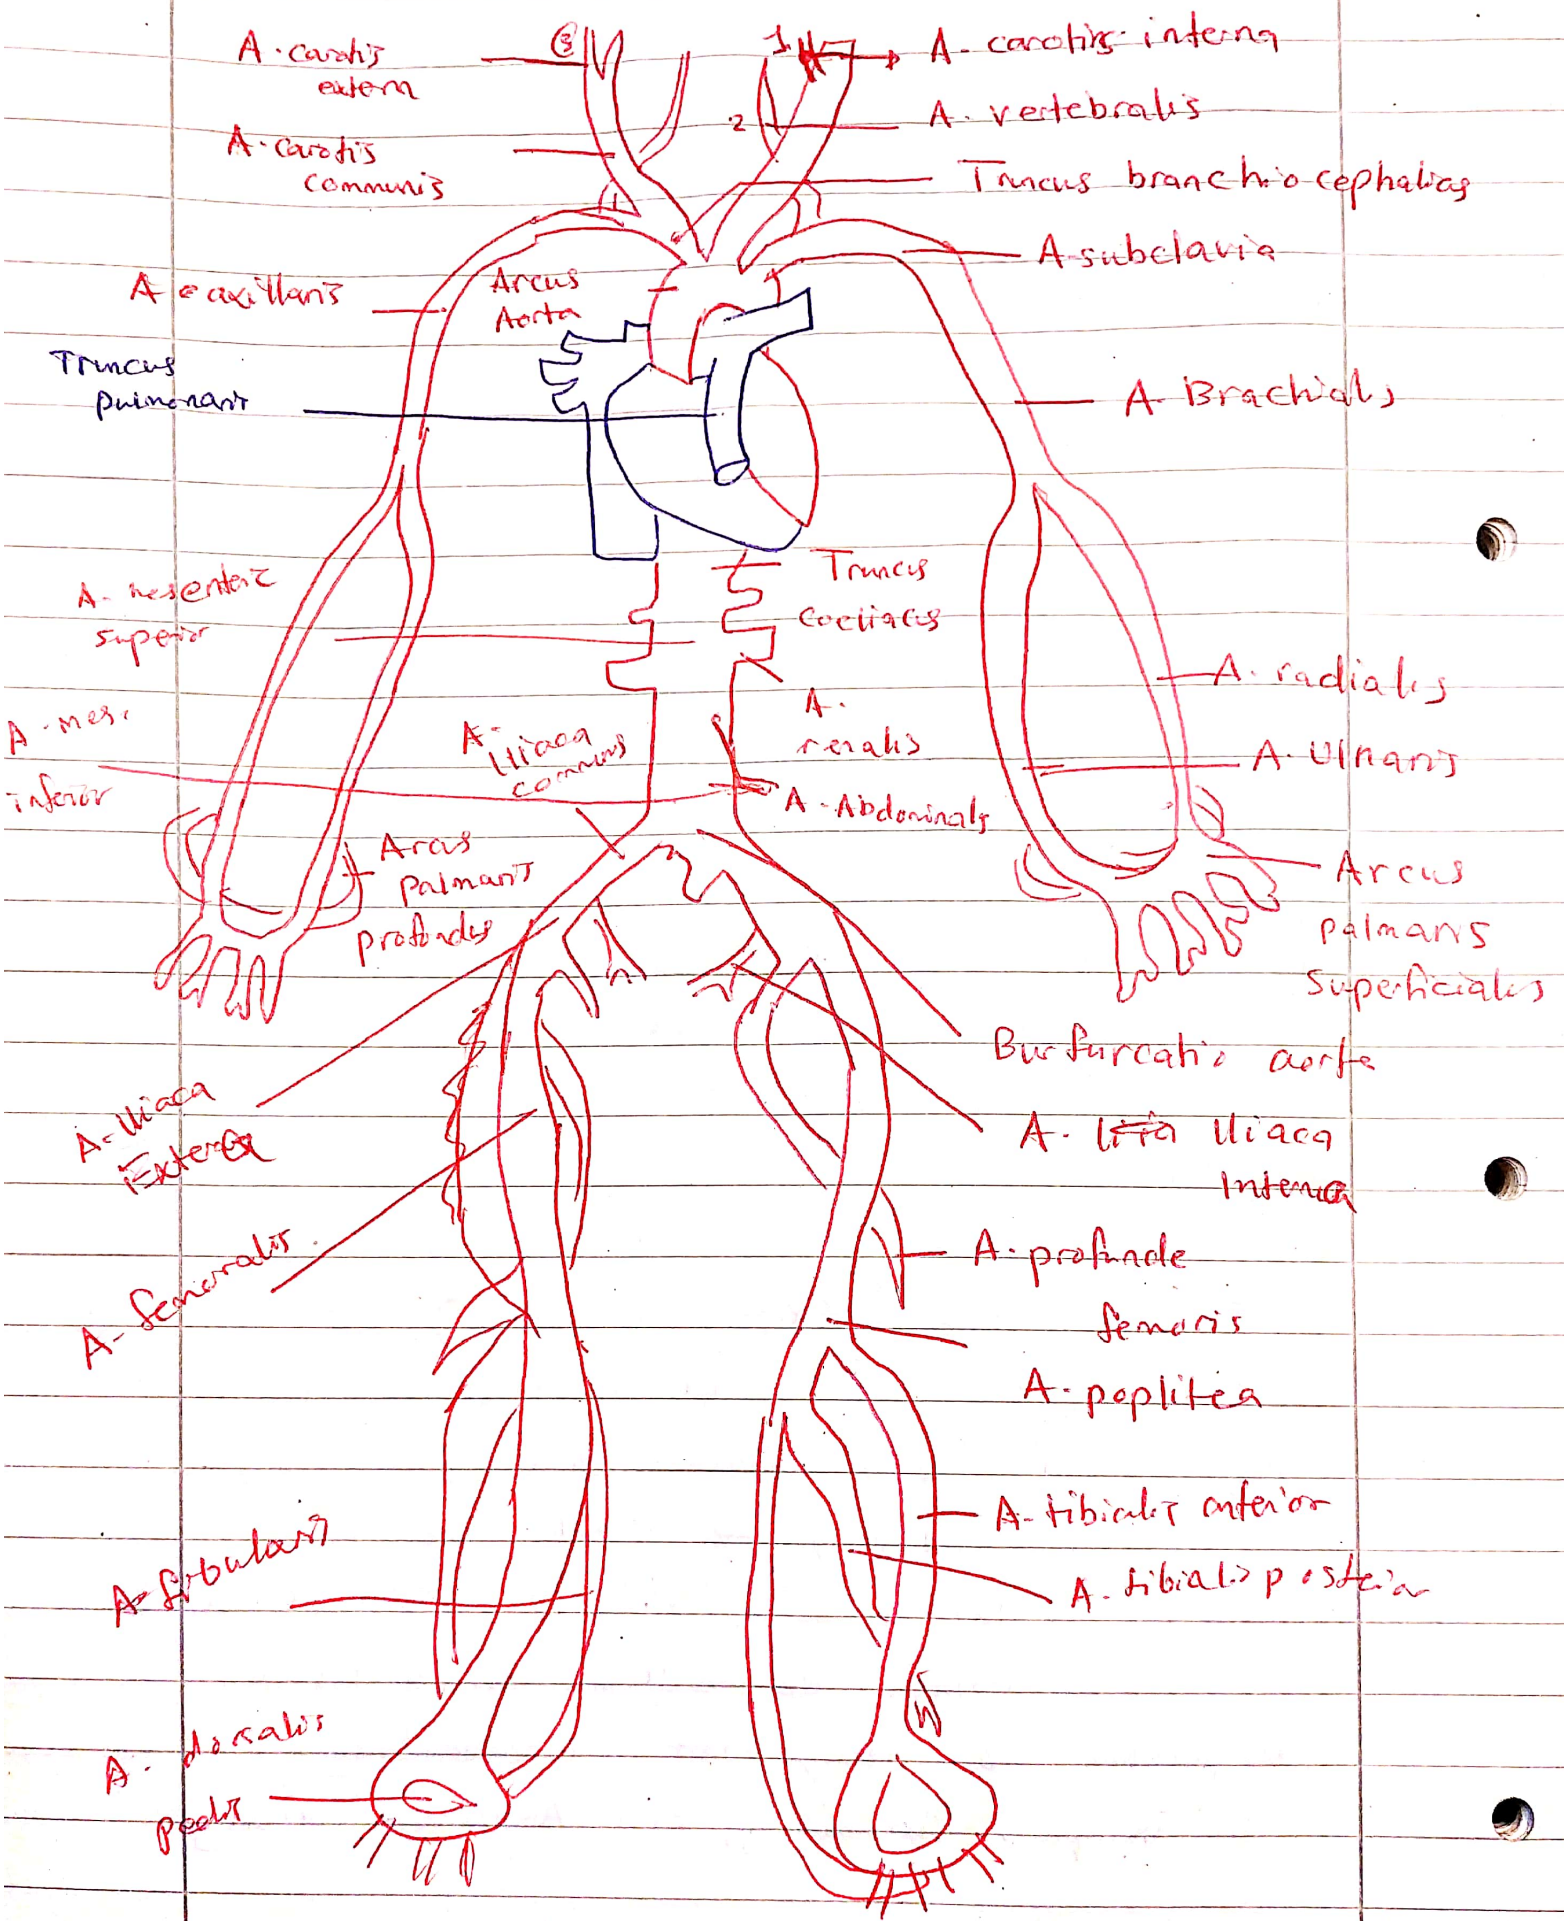 A. carotis
extern
3
1
A. carotis interna
A. carotis
communis
2
A. vertebralis
Truncus branchiocephalicus
A subclavia
A. axillaris
Arcus
Aorta
Truncus
pulmonaris
A Brachialis
A. mesenteric
superior
Truncus
Coeliacus
A. radialis
A. mes.
inferior
A.
Iliaca
communis
A.
renalis
A. Ulnaris
A. Abdominals
Arcus
palmaris
profundus
Arcus
palmaris
superficialis
Burfurcatio aorta
A. Iliaca
Externa
A. Iliaca
Interna
A. femoralis
A. profunde
femoris
A. poplitea
A. tibialis anterior
A. tibialis posterior
A. fibularis
A. dorsalis
pedis